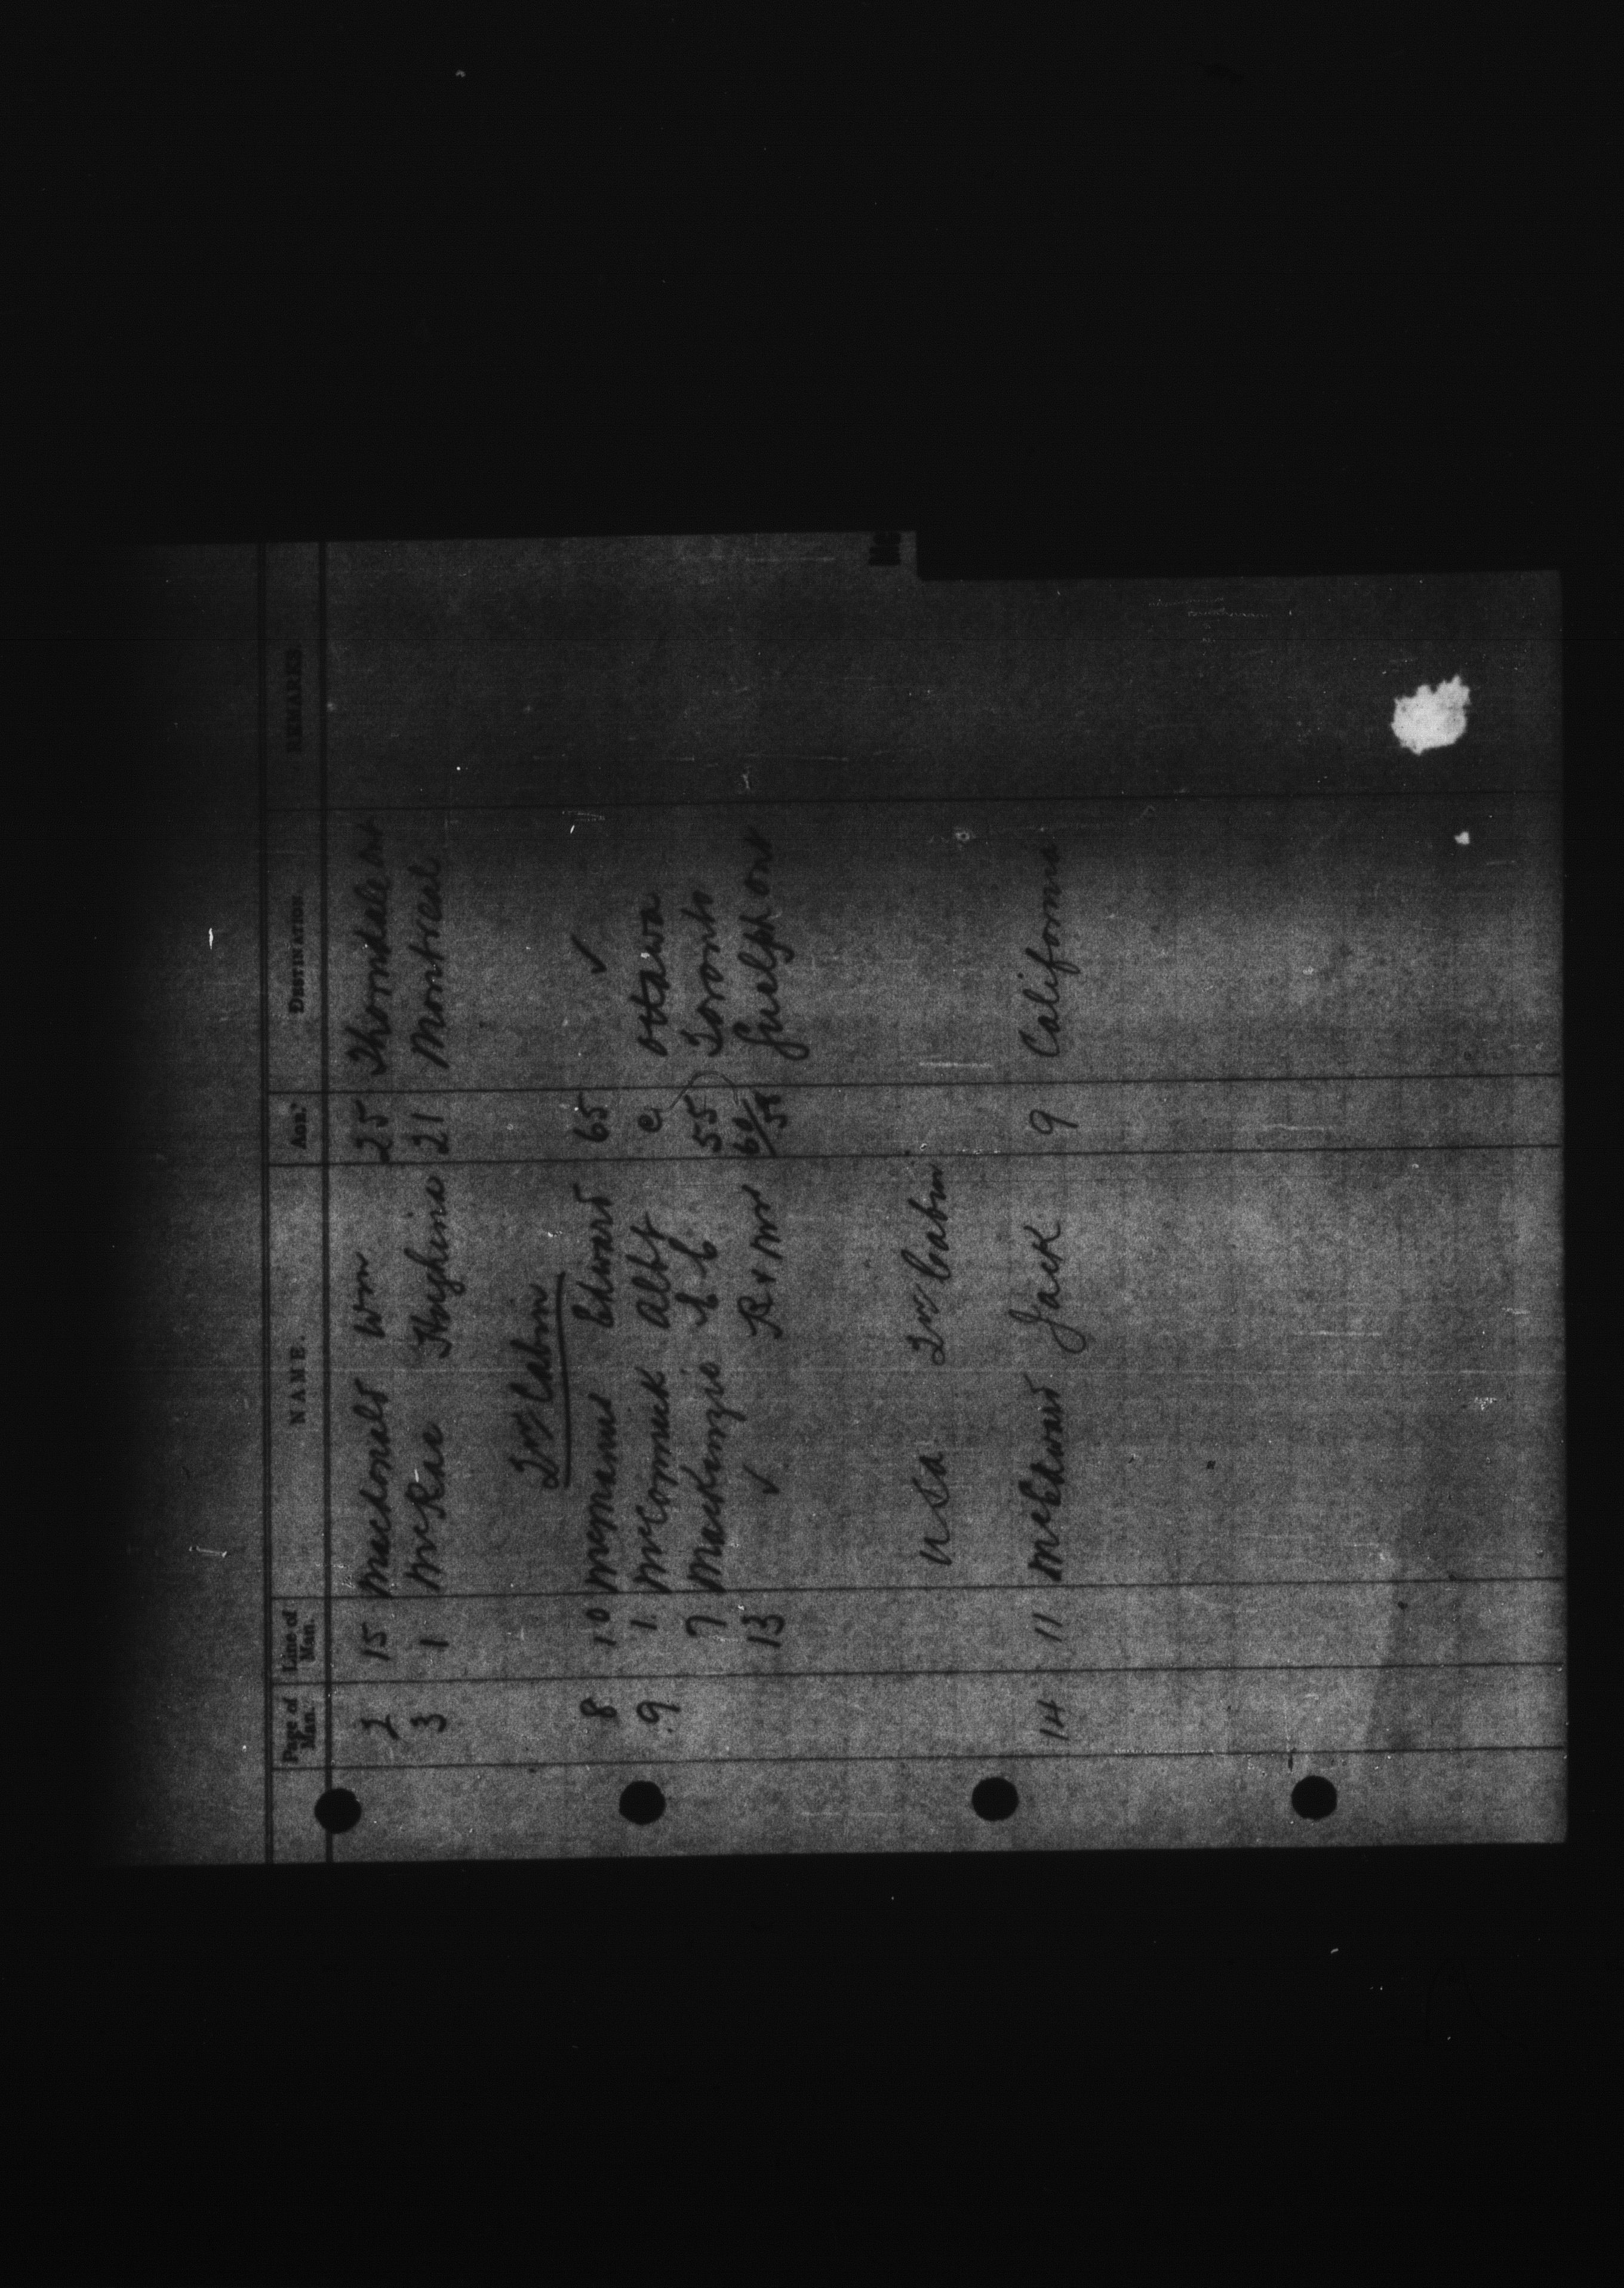 Page of Man. Line of Man. NAME. AGE. DESTINATION. REMARKS.
2 15 Macdonald Wm 25 Thorndale Ont
3 1 McRae Hughina 21 Montreal
2nd Cabin
8 10 McManus Edward 65 ✓
9 1 McCormick Albt e Ottawa
7 Mackenzie 55 Toronto
13 ✓ R + Mrs 60/58 Guelph Ont
USA 2nd Cabin
14 11 McEdward Jack 9 California